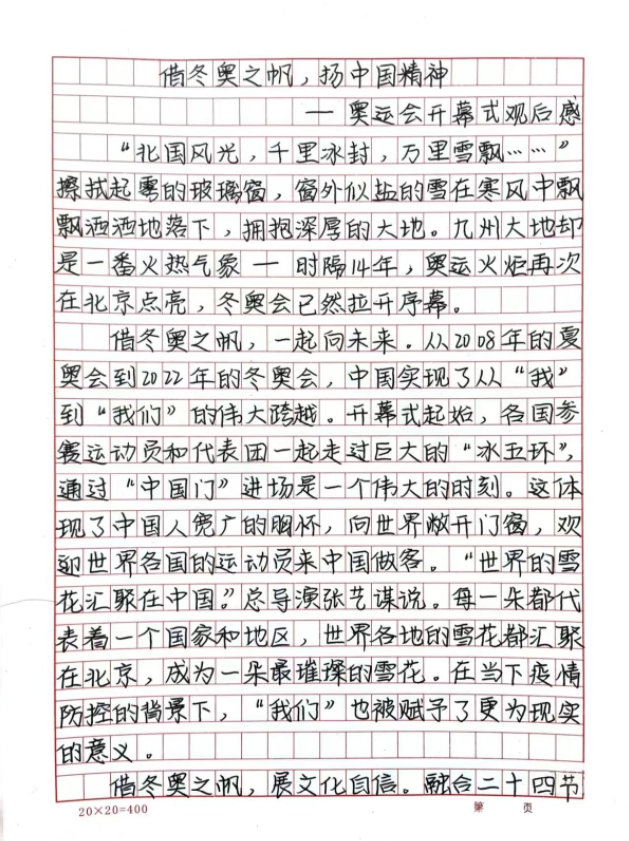 借冬奥之帆，扬中国精神
— 奥运会开幕式观后感
“北国风光，千里冰封，万里雪飘……”
擦拭起雾的玻璃窗，窗外似盐的雪在寒风中飘
飘洒洒地落下，拥抱深厚的大地。九州大地却
是一番火热气象 — 时隔14年，奥运火炬再次
在北京点亮，冬奥会已然拉开序幕。
借冬奥之帆，一起向未来。从2008年的夏
奥会到2022年的冬奥会，中国实现了从“我”
到“我们”的伟大跨越。开幕式起始，各国参
赛运动员和代表团一起走过巨大的“冰五环”，
通过“中国门”进场是一个伟大的时刻。这体
现了中国人宽广的胸怀，向世界敞开门窗，欢
迎世界各国的运动员来中国做客。“世界的雪
花汇聚在中国。”总导演张艺谋说。每一朵都代
表着一个国家和地区，世界各地的雪花都汇聚
在北京，成为一朵最璀璨的雪花。在当下疫情
防控的背景下，“我们”也被赋予了更为现实
的意义。
借冬奥之帆，展文化自信。融合二十四节
20×20=400 第 页